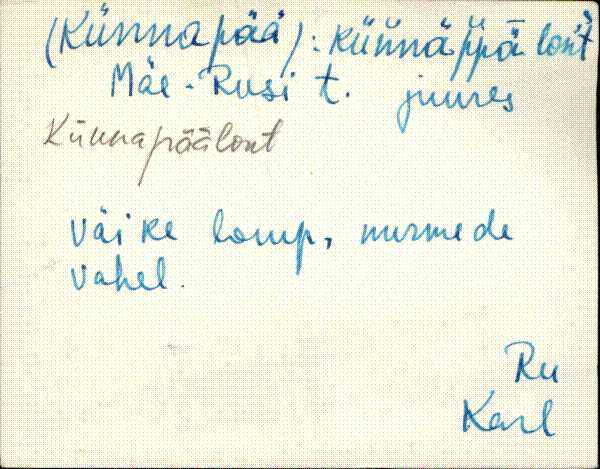 (Künnapää): künnäppä lont̀
Mäe-Rusi t. juures
Künnapäälont
väike lomp, nurmede
vahel.
Ru
Karl